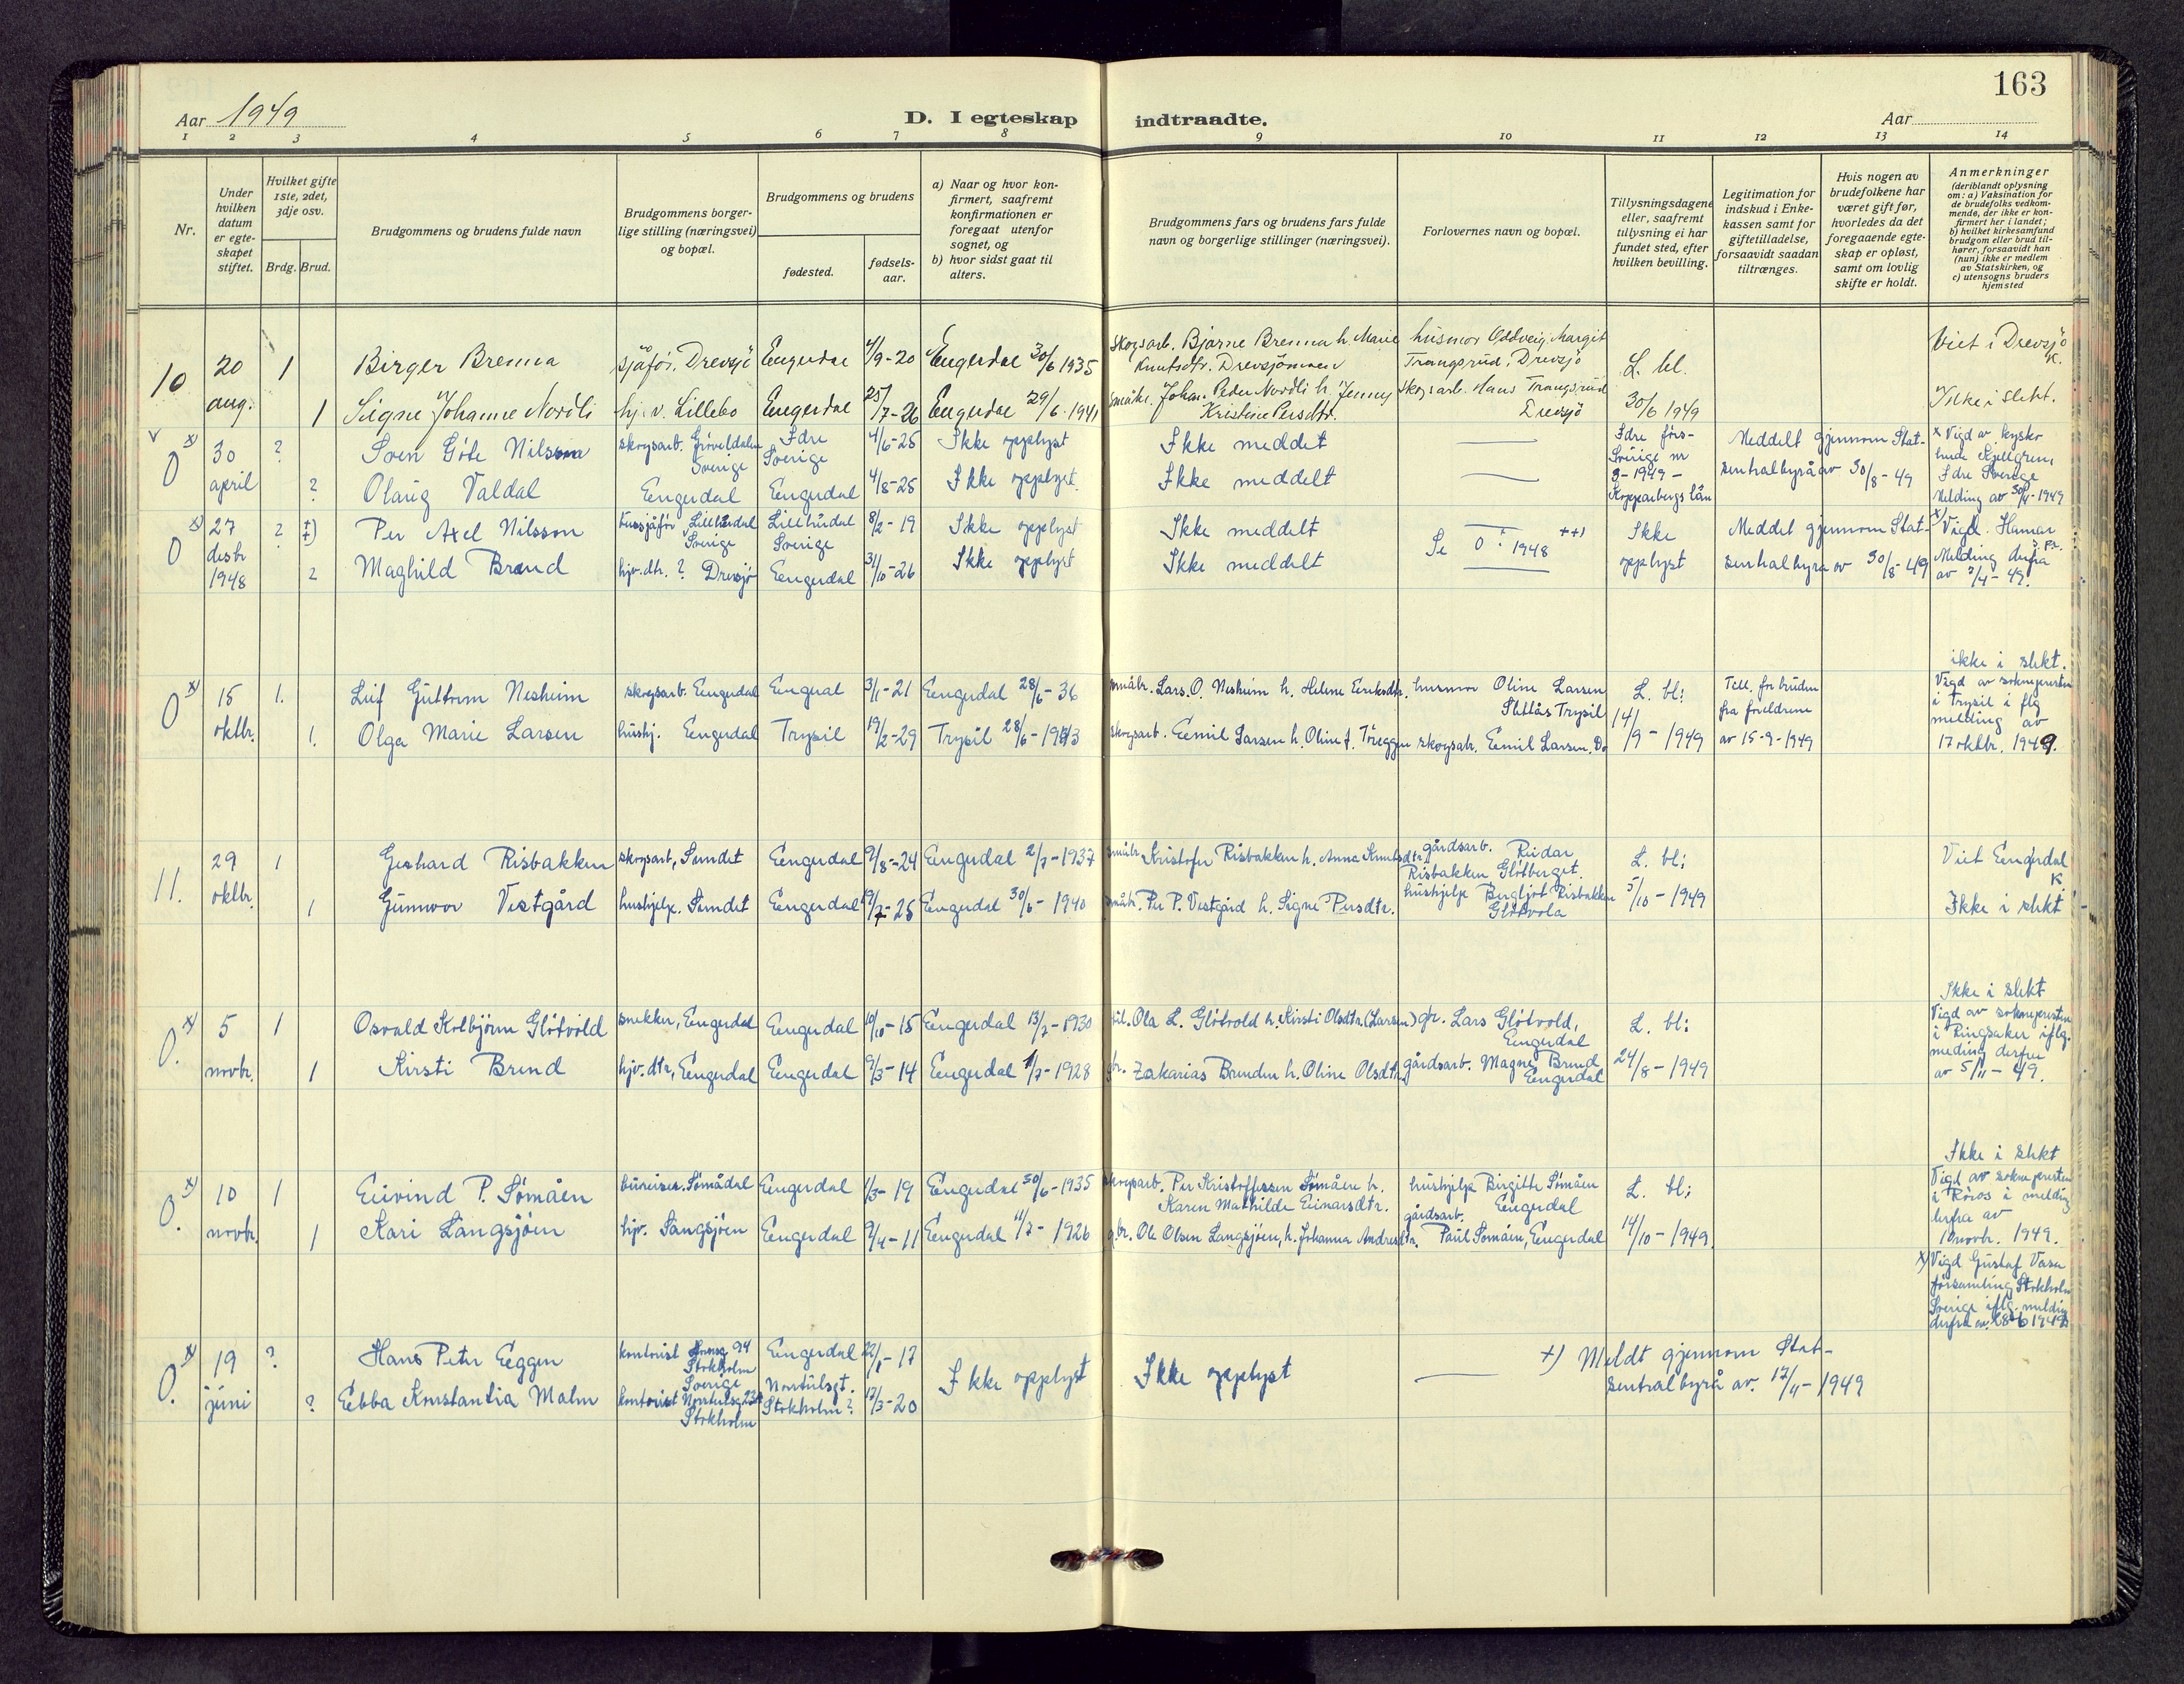 163
Aar 1949
D. I egteskap indtraadte.
Aar
1 2 3 4 5 6 7 8 9 10 11 12 13 14
Nr.
Under hvilken datum er egte-skapet stiftet.
Hvilket gifte 1ste, 2det, 3dje osv.
Brdg. Brud.
Brudgommens og brudens fulde navn
Brudgommens borger-lige stilling (næringsvei) og bopæl.
Brudgommens og brudens
fødested.
fødsels-aar.
a) Naar og hvor kon-firmert, saafremt konfirmationen er foregaat utenfor sognet, og
b) hvor sidst gaat til alters.
Brudgommens fars og brudens fars fulde navn og borgerlige stillinger (næringsvei).
Forlovernes navn og bopæl.
Tillysningsdagene eller, saafremt tillysning ei har fundet sted, efter hvilken bevilling.
Legitimation for indskud i Enke-kassen samt for giftetilladelse, forsaavidt saadan tiltrænges.
Hvis nogen av brudefolkene har været gift før, hvorledes da det foregaaende egte-skap er opløst, samt om lovlig skifte er holdt.
Anmerkninger
(deriblandt oplysning om: a) Vaksination for de brudefolks vedkom-mende, der ikke er kon-firmert her i landet; b) hvilket kirkesamfund brudgom eller brud til-hører, forsaavidt han (hun) ikke er medlem av Statskirken, og c) utensogns bruders hjemsted
10 20 aug. 1 Birger Brenna sjåfør. Drevsjø Engerdal 4/9-20 Engerdal 30/6 1935 Skogsarb. Bjarne Brenna h. Marie Knutsdtr. Drevsjømoen husmor Oddveig Margit Trangsrud, Drevsjø L. bl. Viet i Drevsjø K.
1 Signe Johanne Nordli hj. v. Lillebo Engerdal 25/7-26 Engerdal 29/6-1941 småbr. Johan Peder Nordli h. Jenny Kristine Persdtr. skogsarb. Hans Trangsrud Drevsjø 30/6 1949 Ikke i slekt.
0 x) 30 april ? Sven Göte Nilsson skogsarb. Gröveldalen Sverige Idre Sverige 4/6-25 Ikke opplyst Ikke meddet Idre förs- Sverige nr 3-1949- Kopparbergs län Meddelt gjennom Stat-sentralbyrå av 30/8-49 x Vigd av kyrko herde Kjellgren, Idre Sverige Melding av 30/4-1949
? Olaug Valdal Engerdal Engerdal 4/8-25 Ikke opplyst. Ikke meddelt
0 x) 27 desbr 1948 ? +) Per Axel Nilsson bussjåfør Lillhärdal Sverige Lillhärdal Sverige 8/2-19 Ikke opplyst Ikke meddelt Se 0: 1948 ++) Ikke opplyst Meddet gjennom Stat-sentralbyrå av 30/8-49 x) Vigd. Hamar Melding derfra av 7/4-49.
2 Maghild Brend hjv. dtr. ? Drevsjø Engerdal 31/10-26 Ikke opplyst Ikke meddelt
0 x) 15 oktbr. 1. Leif Guttorm Nesheim skogsarb. Engerdal Engeral 3/1-21 Engerdal 28/6-36 småbr. Lars. O. Nesheim h. Helene Eriksdtr. husmor Oline Larsen Slettås Trysil L. bl: Till. for bruden fra foreldrene av 15-9-1949 ikke i slekt. Vigd av soknepresten i Trysil i flg melding av 17 oktbr. 1949.
1. Olga Marie Larsen hushj. Engerdal Trysil 19/2-29 Trysil 28/6-1943 skogsarb. Eemil Larsen h. Oline f. Töreggen skogsab. Eemil Larsen. Do 14/9-1949
11. 29 oktbr. 1 Gerhard Risbakken skogsarb, Sundet Engerdal 9/8-24 Engerdal 2/7-1937 småbr Kristofer Risbakken h. Anna Knutsdtr. gårdsarb. Reidar Risbakken Glötberget. L. bl: Viet Engerdal K.
1 Gunvor Vestgård hushjelp. Sundet Engerdal 9/7-25 Engerdal 30/6-1940 småbr. Per P. Vestgård h. Signe Persdtr. hushjelp Bergljot Risbakken Glötvola 5/10-1949 Ikke i slekt
0. x) 5 novbr. 1 Osvald Kolbjörn Glötvold snekker, Engerdal Engerdal 10/10-15 Engerdal 13/7-1930 Ola L. Glötvold h. Kirsti Olsdtr. (Larsen) gbr. Lars Glötvold, Engerdal L. bl: Ikke i slekt Vigd av soknepresten i Ringsaker iflg. meding derfra av 5/11-49.
1 Kirsti Brend hjv. dtr, Engerdal Engerdal 9/3-14 Engerdal 1/7-1928 gbr. Zakarias Brenden h. Oline Olsdtr. gårdsarb. Magne Brend Engerdal 24/8-1949
0. x) 10 novbr. 1 Eivind P. Sömåen bureiser. Sömådal Engerdal 1/3-19 Engerdal 30/6-1935 skogsarb. Per Kristoffersen Sömåen h. Karen Mathilde Eimarsdtr. hushjelp Birgitte Sömåen Engerdal L. bl: Ikke i slekt Vigd av soknepresten i Röros i melding herfra av 10 novbr. 1949.
1 Kari Langsjöen hjv. Langsjöen Engerdal 9/4-11 Engerdal 11/7-1926 gbr. Ole Olsen Langsjöen, h. Johanna Andresdtr. gårdsarb. Paul Sömåen, Engerdal 14/10-1949.
0. x) 19 juni ? Hans Peter Eeggen kontorist 94 Stokholm Sverige Engerdal 22/1-17 Ikke opplyst Ikke opplyst +) Meldt gjennom Stat-sentralbyrå av. 17/11-1949 x) Vigd Gustaf Vasa församling Stokholm Sverige iflg. melding derfra av. 28-6 1949
? Ebba Konstantia Malm kontorist Norrtulsg 23 Stokholm Norrtulsgt. Stokholm? 17/3-20